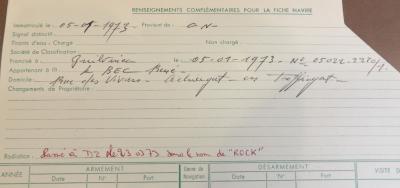 RENSEIGNEMENTS COMPLÉMENTAIRES POUR LA FICHE NAVIRE
Immatriculé le : 05-01-1973 Provient de : C.N.
Signal distinctif :
Tirants d'eau - Chargé : Non chargé :
Société de Classification :
Francisé à : le : 05-01-1973 - No
Appartenant à : Le BEC René
Domicile : Rue des - en Treffiagat
Changements de Propriétaire :
Radiation : Passé à DZ le 23 03 73 sous le nom de "ROCK"
ARMEMENT Genre de Navigation DÉSARMEMENT VISITE
ANNÉE Date No Port Date No Port